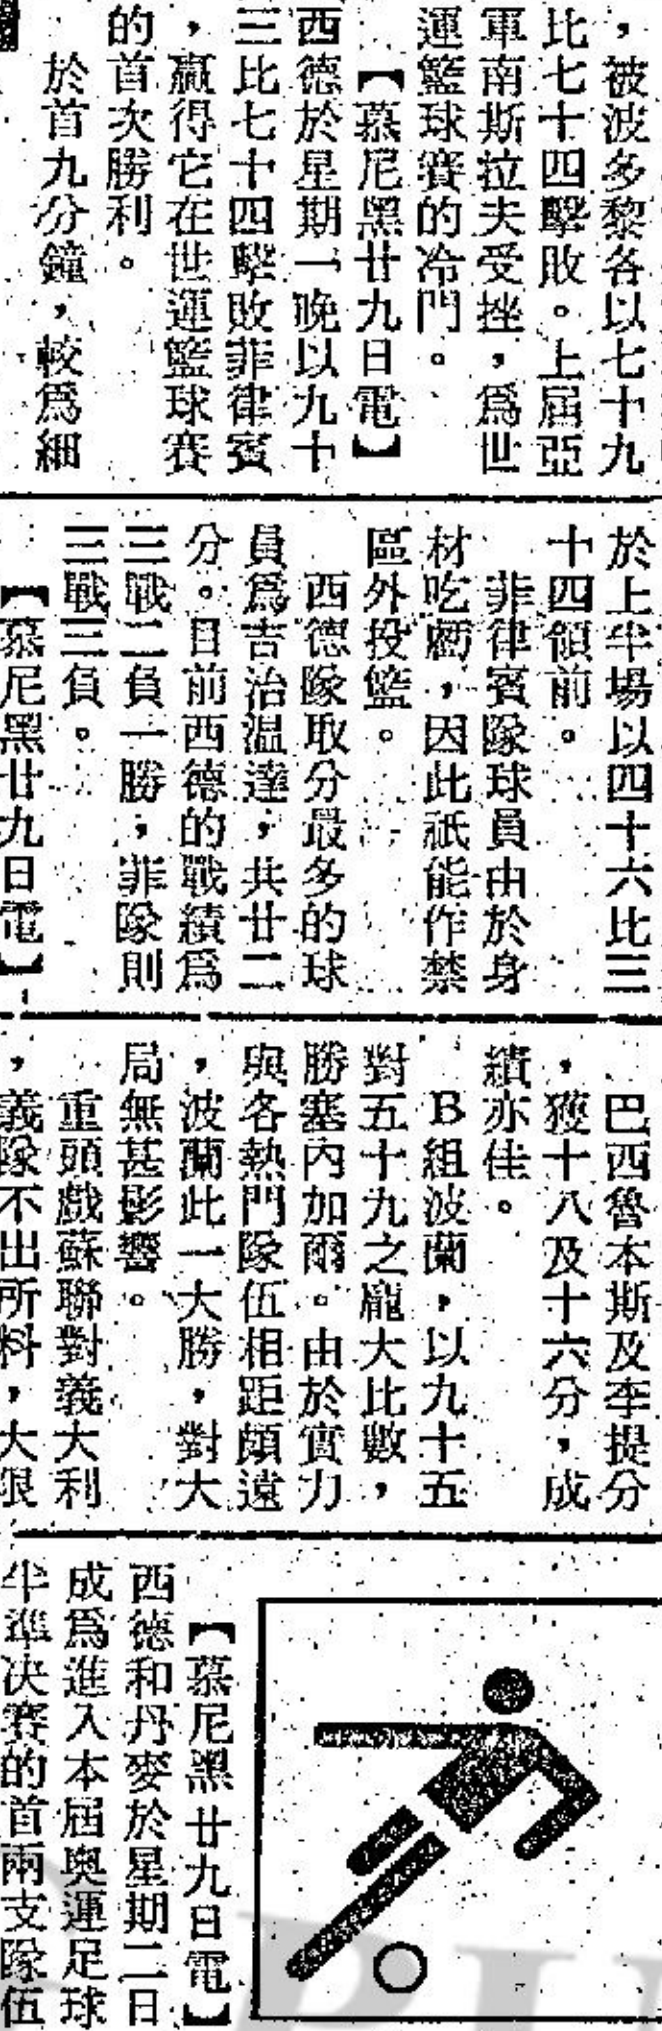 ，被波多黎各以七十九
比七十四擊敗。上屆亞
軍南斯拉夫受挫，爲世
運籃球賽的冷門。
【慕尼黑廿九日電】
西德於星期一晚以九十
三比七十四擊敗菲律賓
，贏得它在世運籃球賽
的首次勝利。
於首九分鐘，較爲細
於上半場以四十六比三
十四領前。
菲律賓隊球員由於身
材吃虧，因此祇能作禁
區外投籃。
西德隊取分最多的球
員爲吉治温達，共廿二
分。目前西德的戰績爲
三戰二負一勝，菲隊則
三戰三負。
【慕尼黑廿九日電】
巴西魯本斯及李提分
，獲十八及十六分，成
績亦佳。
B組波蘭，以九十五
對五十九之龐大比數，
勝塞內加爾。由於實力
與各熱門隊伍相距頗遠
，波蘭此一大勝，對大
局無甚影響。
重頭戲蘇聯對義大利
，義隊不出所料，大狠
【慕尼黑廿九日電】
西德和丹麥於星期二日
成爲進入本屆奧運足球
半準决賽的首兩支隊伍